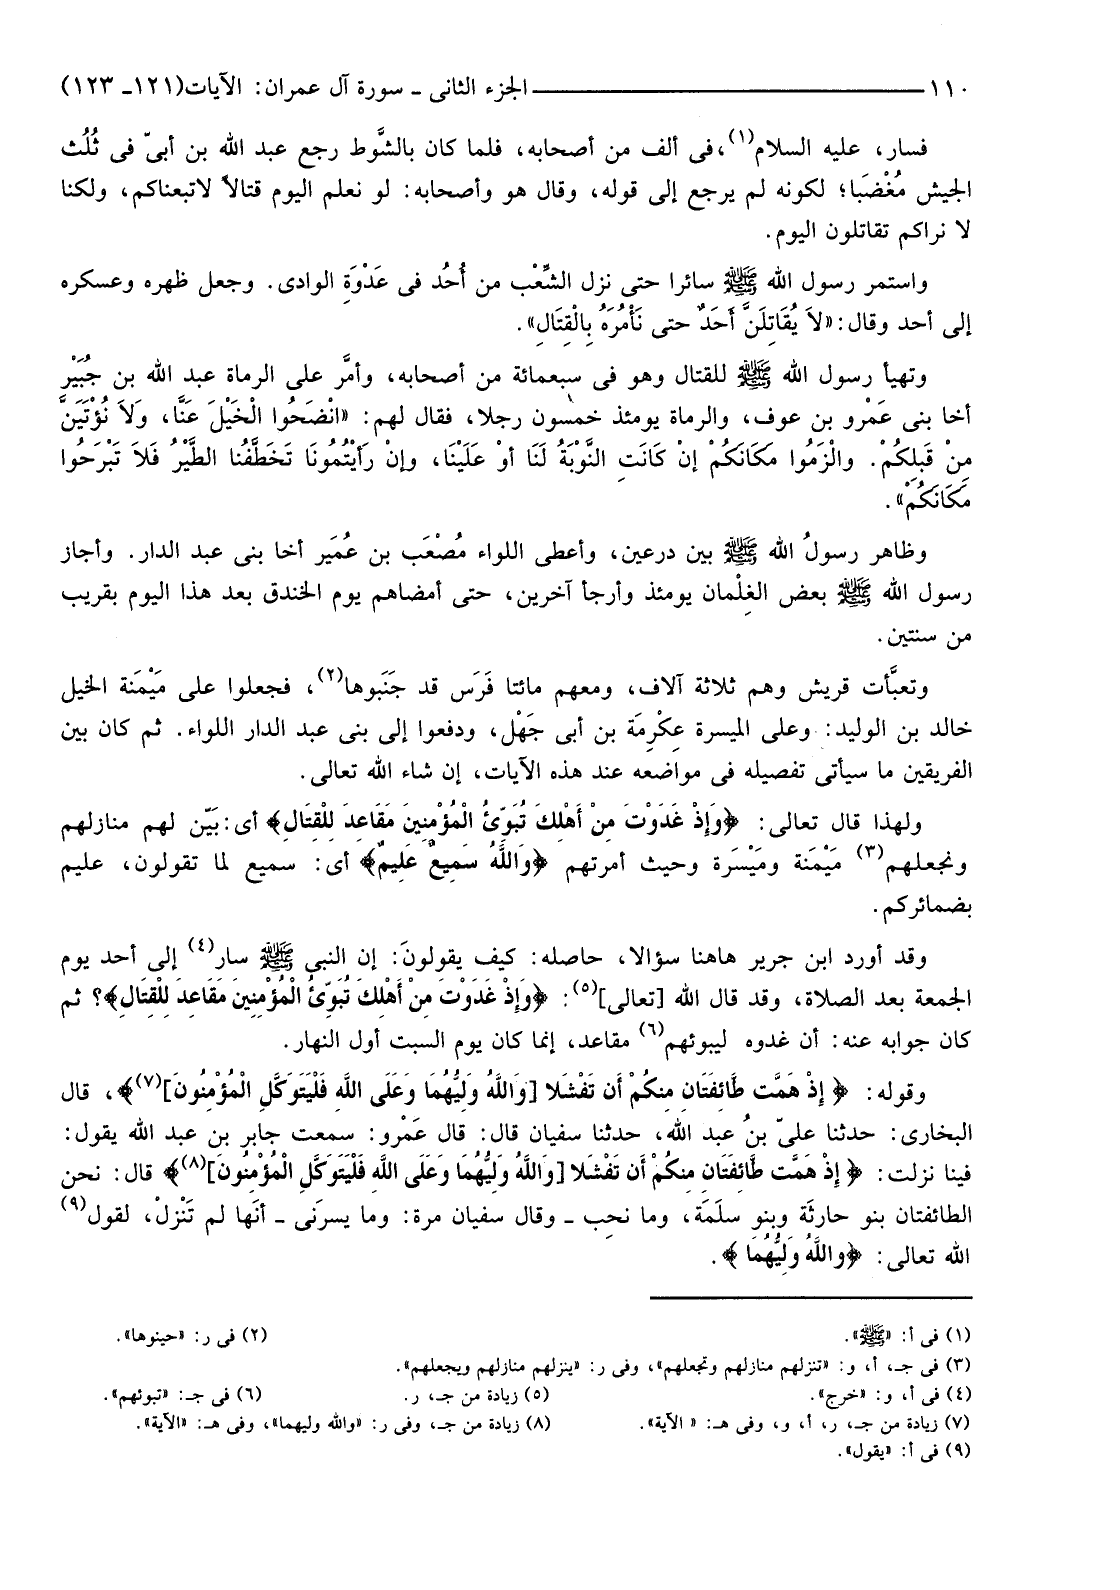 ١١٠ ــــــ الجزء الثانى ـ سورة آل عمران: الآيات(١٢١ـ ١٢٣)
فسار، عليه السلام(١)،فى ألف من أصحابه، فلما كان بالشَّوط رجع عبد الله بن أبىّ فى ثُلُث
الجيش مُغْضَبا؛ لكونه لم يرجع إلى قوله، وقال هو وأصحابه: لو نعلم اليوم قتالاً لاتبعناكم، ولكنا
لا نراكم تقاتلون اليوم.
واستمر رسول الله ﷺ سائرا حتى نزل الشِّعْب من أُحُد فى عَدْوَةِ الوادى. وجعل ظهره وعسكره
إلى أحد وقال:«لاَ يُقَاتِلَنَّ أَحَدٌ حتى نَأْمُرَهُ بِالْقِتَالِ».
وتهيأ رسول الله ﷺ للقتال وهو فى سبعمائة من أصحابه، وأمَّر على الرماة عبد الله بن جُبَيْر
أخا بنى عَمْرو بن عوف، والرماة يومئذ خمسون رجلا، فقال لهم: «انْضَحُوا الْخَيْلَ عَنَّا، وَلاَ نُؤْتَيَنَّ
مِنْ قَبلِكُمْ. والْزَمُوا مَكَانَكُمْ إنْ كَانَتِ النَّوْبَةُ لَنَا أوْ عَلَيْنَا، وإنْ رَأيْتُمُونَا تَخَطَّفُنا الطَّيْرُ فَلاَ تَبْرَحُوا
مَكَانَكُمْ».
وظاهر رسولُ الله ﷺ بين درعين، وأعطى اللواء مُصْعَب بن عُمَير أخا بنى عبد الدار. وأجاز
رسول الله ﷺ بعض الغِلْمان يومئذ وأرجأ آخرين، حتى أمضاهم يوم الخندق بعد هذا اليوم بقريب
من سنتين.
وتعبَّأت قريش وهم ثلاثة آلاف، ومعهم مائتا فَرَس قد جَنَبوها(٢)، فجعلوا على مَيْمَنة الخيل
خالد بن الوليد: وعلى الميسرة عِكْرِمَة بن أبى جَهْل، ودفعوا إلى بنى عبد الدار اللواء. ثم كان بين
الفريقين ما سيأتى تفصيله فى مواضعه عند هذه الآيات، إن شاء الله تعالى.
ولهذا قال تعالى: ﴿وَإِذْ غَدَوْتَ مِنْ أَهْلِكَ تُبَوِّئُ الْمُؤْمِنِينَ مَقَاعِدَ لِلْقِتَالِ﴾ أى:بَيّن لهم منازلهم
ونجعلهم(٣) مَيْمَنة ومَيْسَرة وحيث أمرتهم ﴿وَاللَّهُ سَمِيعٌ عَلِيمٌ﴾ أى: سميع لما تقولون، عليم
بضمائركم.
وقد أورد ابن جرير هاهنا سؤالا، حاصله: كيف يقولونَ: إن النبى ﷺ سار(٤) إلى أحد يوم
الجمعة بعد الصلاة، وقد قال الله [تعالى](٥): ﴿وَإِذْ غَدَوْتَ مِنْ أَهْلِكَ تُبَوِّئُ الْمُؤْمِنِينَ مَقَاعِدَ لِلْقِتَالِ﴾؟ ثم
كان جوابه عنه: أن غدوه ليبوئهم(٦) مقاعد، إنما كان يوم السبت أول النهار.
وقوله: ﴿ إِذْ هَمَّت طَّائِفَتَانِ مِنكُمْ أَن تَفْشَلا [وَاللَّهُ وَلِيُّهُمَا وَعَلَى اللَّهِ فَلْيَتَوَكَّلِ الْمُؤْمِنُونَ](٧)﴾، قال
البخارى: حدثنا علىّ بنُ عبد الله، حدثنا سفيان قال: قال عَمْرو: سمعت جابر بن عبد الله يقول:
فينا نزلت: ﴿ إِذْ هَمَّت طَّائِفَتَانِ مِنكُمْ أَن تَفْشَلا [وَاللَّهُ وَلِيُّهُمَا وَعَلَى اللَّهِ فَلْيَتَوَكَّلِ الْمُؤْمِنُونَ](٨)﴾ قال: نحن
الطائفتان بنو حارثَة وبنو سلَمَة، وما نحِب ـ وقال سفيان مرة: وما يسرَنى ـ أنَها لم تَنْزلْ، لقول(٩)
الله تعالى: ﴿وَاللَّهُ وَلِيُّهُمَا ﴾.
(١) فى أ: «ﷺ». (٢) فى ر: «حينوها».
(٣) فى جـ، أ، و: «تنزلهم منازلهم وتجعلهم»، وفى ر: «ينزلهم منازلهم ويجعلهم».
(٤) فى أ، و: «خرج». (٥) زيادة من جـ، ر. (٦) فى جـ: «تبوئهم».
(٧) زيادة من جـ، ر، أ، و، وفى هـ: « الآية». (٨) زيادة من جـ، وفى ر: «والله وليهما»، وفى هـ: «الآية».
(٩) فى أ: «يقول».